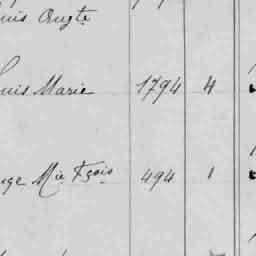 ouis Augte
ouis Marie 1794 4
uge Mie Fçois 494 1